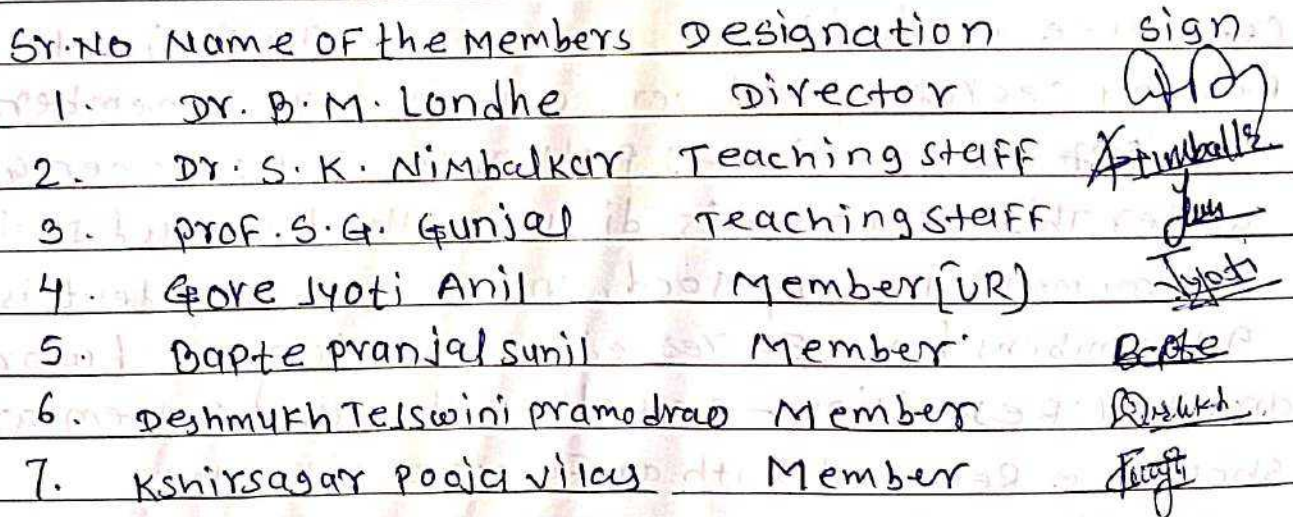 Sr.No Name of the Members Designation sign.
1. Dr. B. M. Londhe Director
2. Dr. S. K. Nimbalkar Teaching staff
3. Prof. S. G. Gunjal Teaching staff
4. Gore Jyoti Anil Member [UR) Jyoti
5. Bapte pranjal sunil Member Bapte
6. Deshmukh Tejswini pramodrao Member
7. Kshirsagar Pooja vilas Member